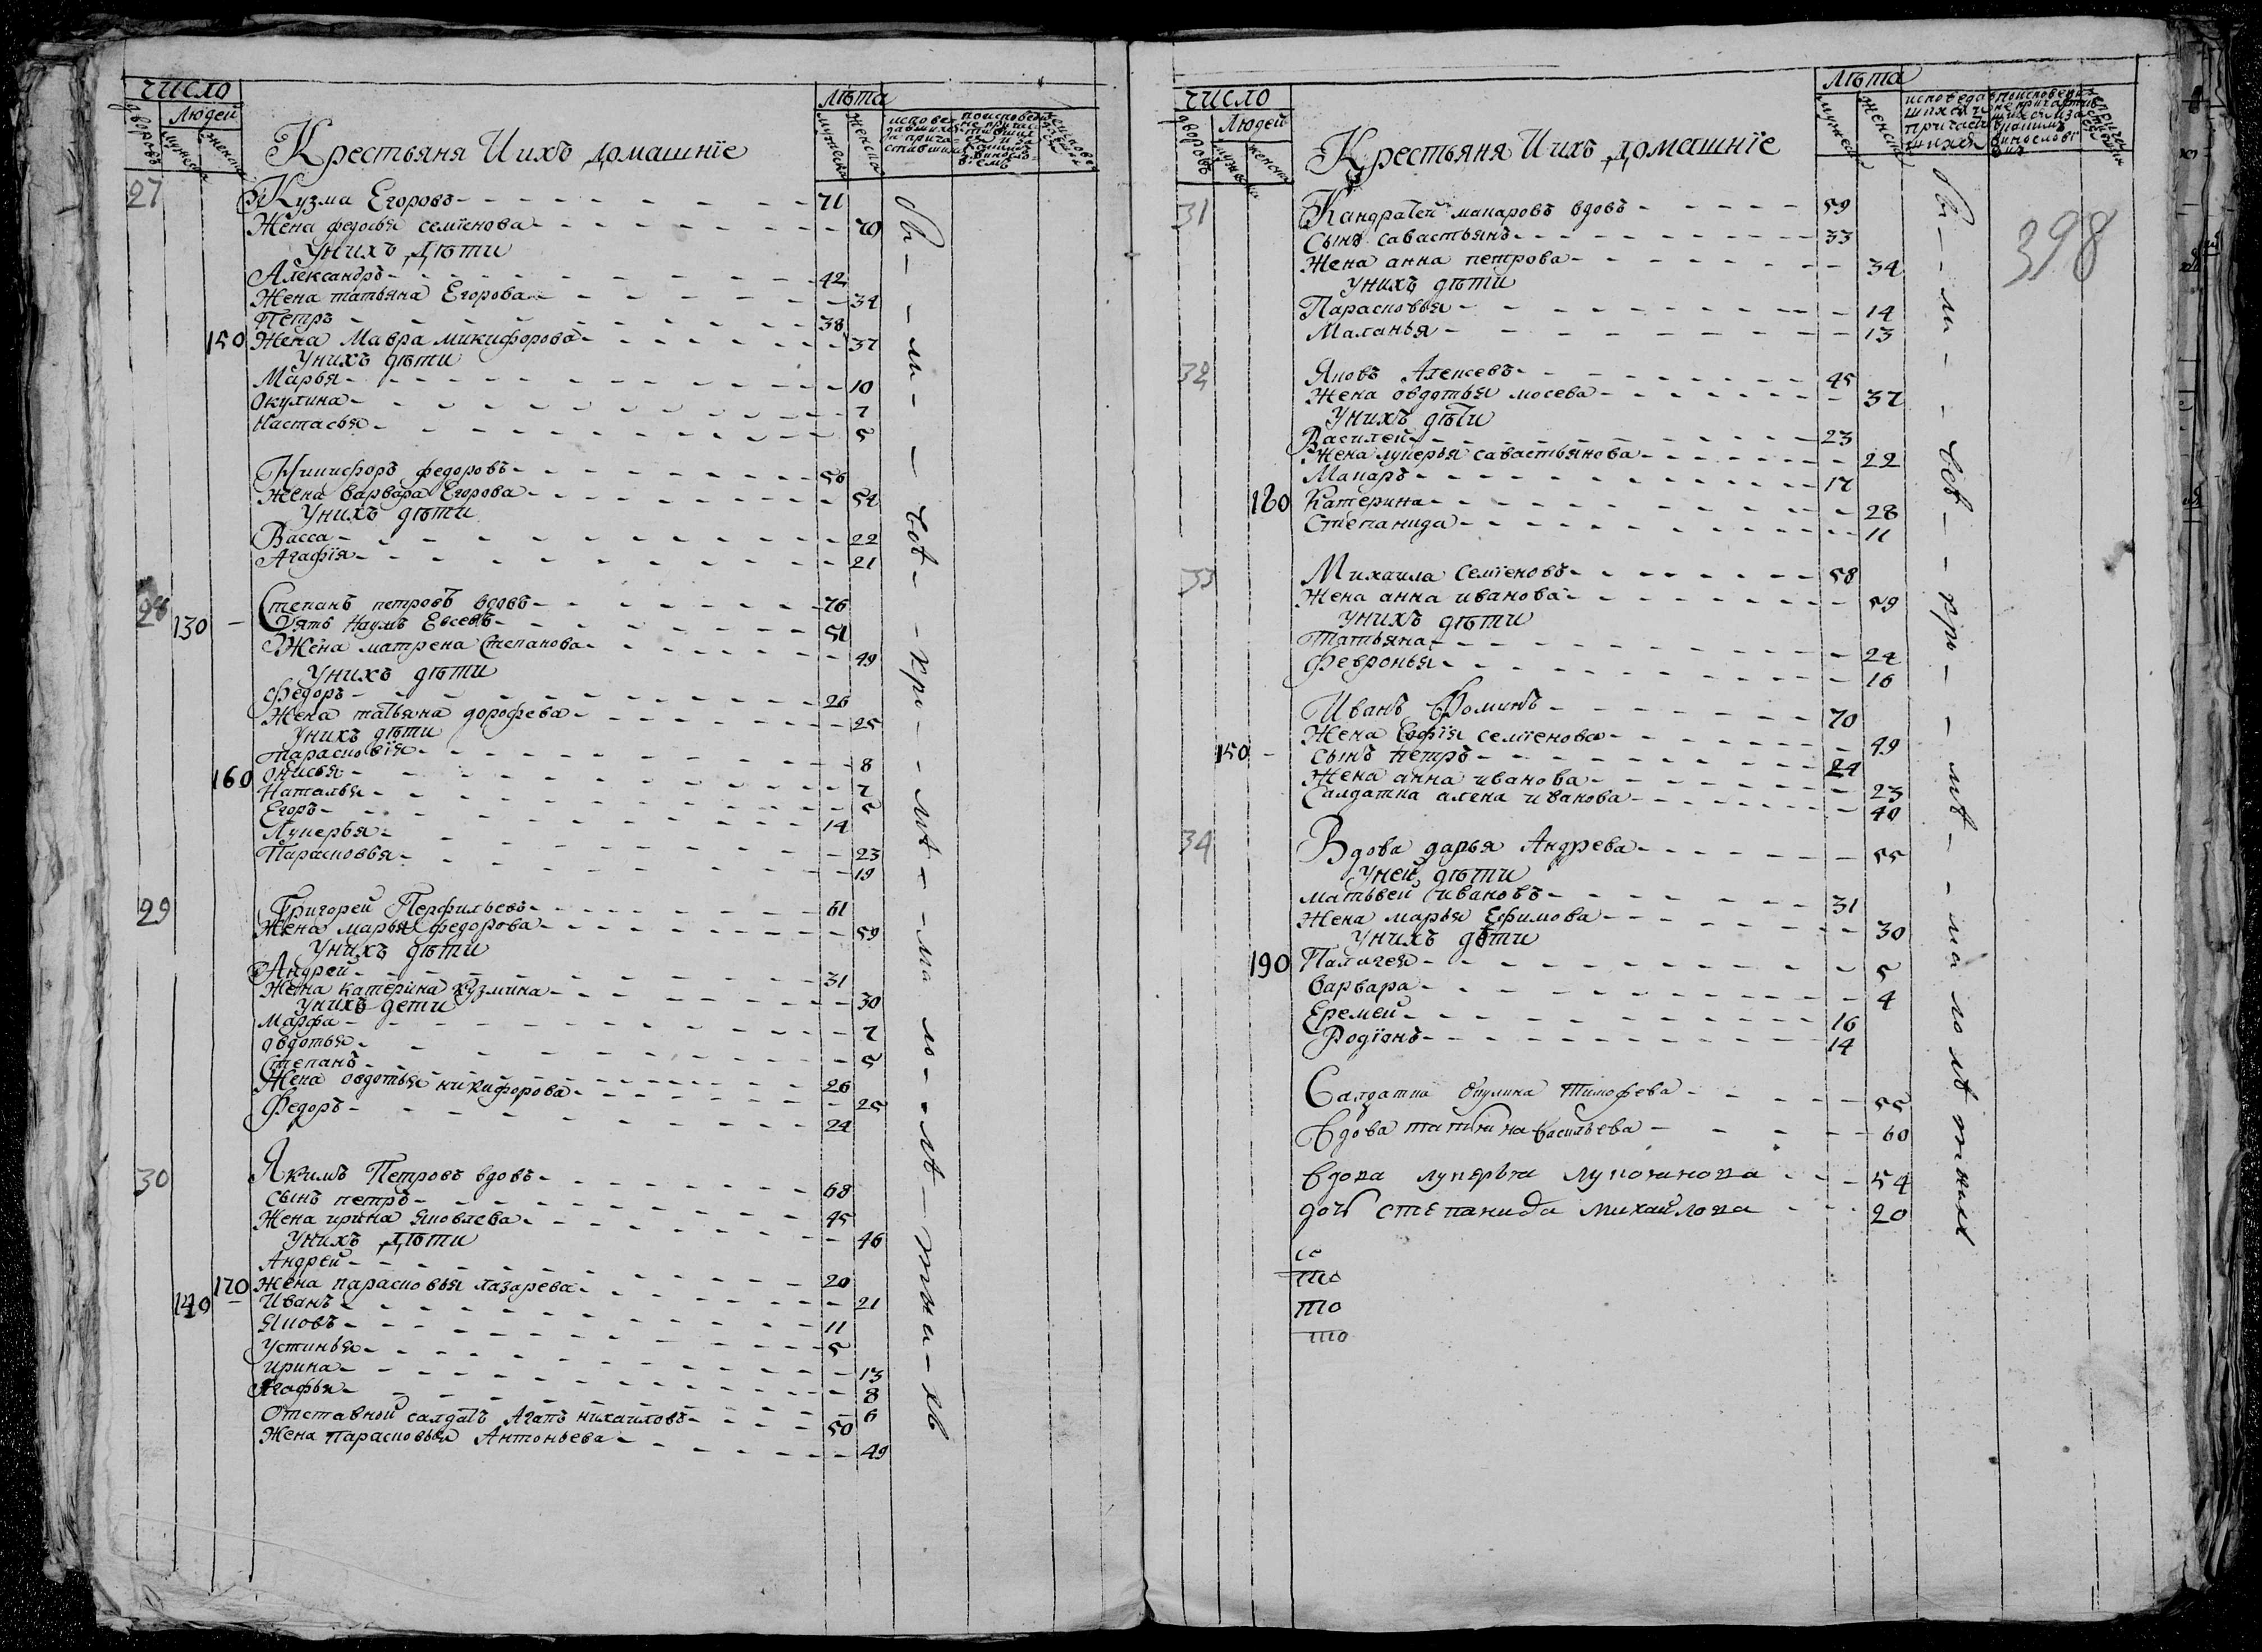 число
Людей
дворовъ
мужеска
женска
Крестьяня И ихъ домашнїе
лѣта
мужеска
женска
27
Кузма Егоровъ 71
Жена федосья семїенова 70
У нихъ Дѣти
Александръ 42
Жена татьяна Егорова 34
Петръ 38
150 Жена Мавра микифорова 37
У нихъ дѣти
Марья 10
Окулина 7
Настасья 5
Никифоръ федоровъ 56
Жена варвара Егорова 54
У нихъ дѣти
Васса 22
Агафїя 21
28 Степанъ петровъ вдовъ 76
130 Зять Наумъ Евсевъ 51
Жена матрена Степанова 49
У нихъ дѣти
Федоръ 26
Жена татьяна дорофева 25
У нихъ дѣти
Парасковїя 8
160 Онисья 7
Наталья 5
Егоръ 14
Лукерья 23
Парасковья 19
29 Григорей Перфильевъ 61
Жена марья федорова 59
У нихъ дѣти
Андрей 31
Жена катерина кузмина 30
У нихъ дети
Марфа 7
овдотья 5
Степанъ 26
Жена овдотья никифорова 25
Федоръ 24
30 Якимъ Петровъ вдовъ 68
сынъ петръ 45
Жена ирина яковлева 46
У нихъ Дѣти
Андрей 20
170 Жена парасковья лазарева 21
140 Иванъ 11
Яковъ 5
Устинья 13
ирина 8
Агафья 6
Отставной салдатъ Агапъ михаиловъ 50
Жена парасковья Антоньева 49
число
Людей
дворовъ
мужеска
женска
Крестьяня И ихъ домашнїе
лѣта
мужеска
женска
398
31 Кандратей макаровъ вдовъ 59
Сынъ савастьянъ 33
Жена анна петрова 34
У нихъ дѣти
Парасковья 14
Маланья 13
32 Яковъ Алексевъ 45
Жена овдотья мосева 37
У нихъ дѣти
Василей 23
Жена лукерья савастьянова 22
Макаръ 17
180 Катерина 28
Степанида 11
33 Михаила Семїеновъ 58
Жена анна иванова 59
У нихъ дѣти
Татьяна 24
Февронья 16
Иванъ Фоминъ 70
Жена Софїя семїенова 49
150 сынъ петръ 24
Жена анна иванова 23
Салдатка алена иванова 40
34 Вдова дарья Андрева 55
У ней дѣти
матьвей ивановъ 31
Жена марья Ефимова 30
У нихъ дѣти
190 Палагея 5
варвара 4
Еремей 16
Родїонъ 14
Салдатка Окулина Тимофева 55
Вдова татьяна васильева 60
вдова лукерья
54
дочь степанида михайлова 20
то
то